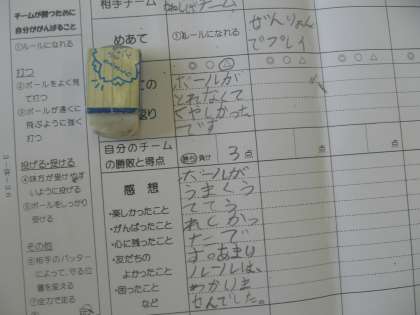 チームが勝つために
自分ががんばること
①ルールになれる
打つ
②ボールをよく見
て打つ
③ボールが遠くに
飛ぶように強く
打つ
投げる・受ける
④味方が受けやす
いように投げる
⑤ボールをしっかり
受ける
その他
⑥相手のバッター
によって、守る位
置を変える
⑦全力で走る
相手チーム
チーム
めあて
①ルールになれる
ぜんりょく
でプレイ
◎ ○ △
◎ ○ △
◎ ○ △
ボールが
とれなくて
くやしかった
です
自分のチーム
の勝敗と得点
勝ち 負け 3点
点
点
感想
・楽しかったこと
・がんばったこと
・心に残ったこと
・友だちの
よかったこと
・困ったこと
など
ボールが
うまくう
てて
れしかっ
たで
す。あまり
ルールは、
わかりま
せんでした。